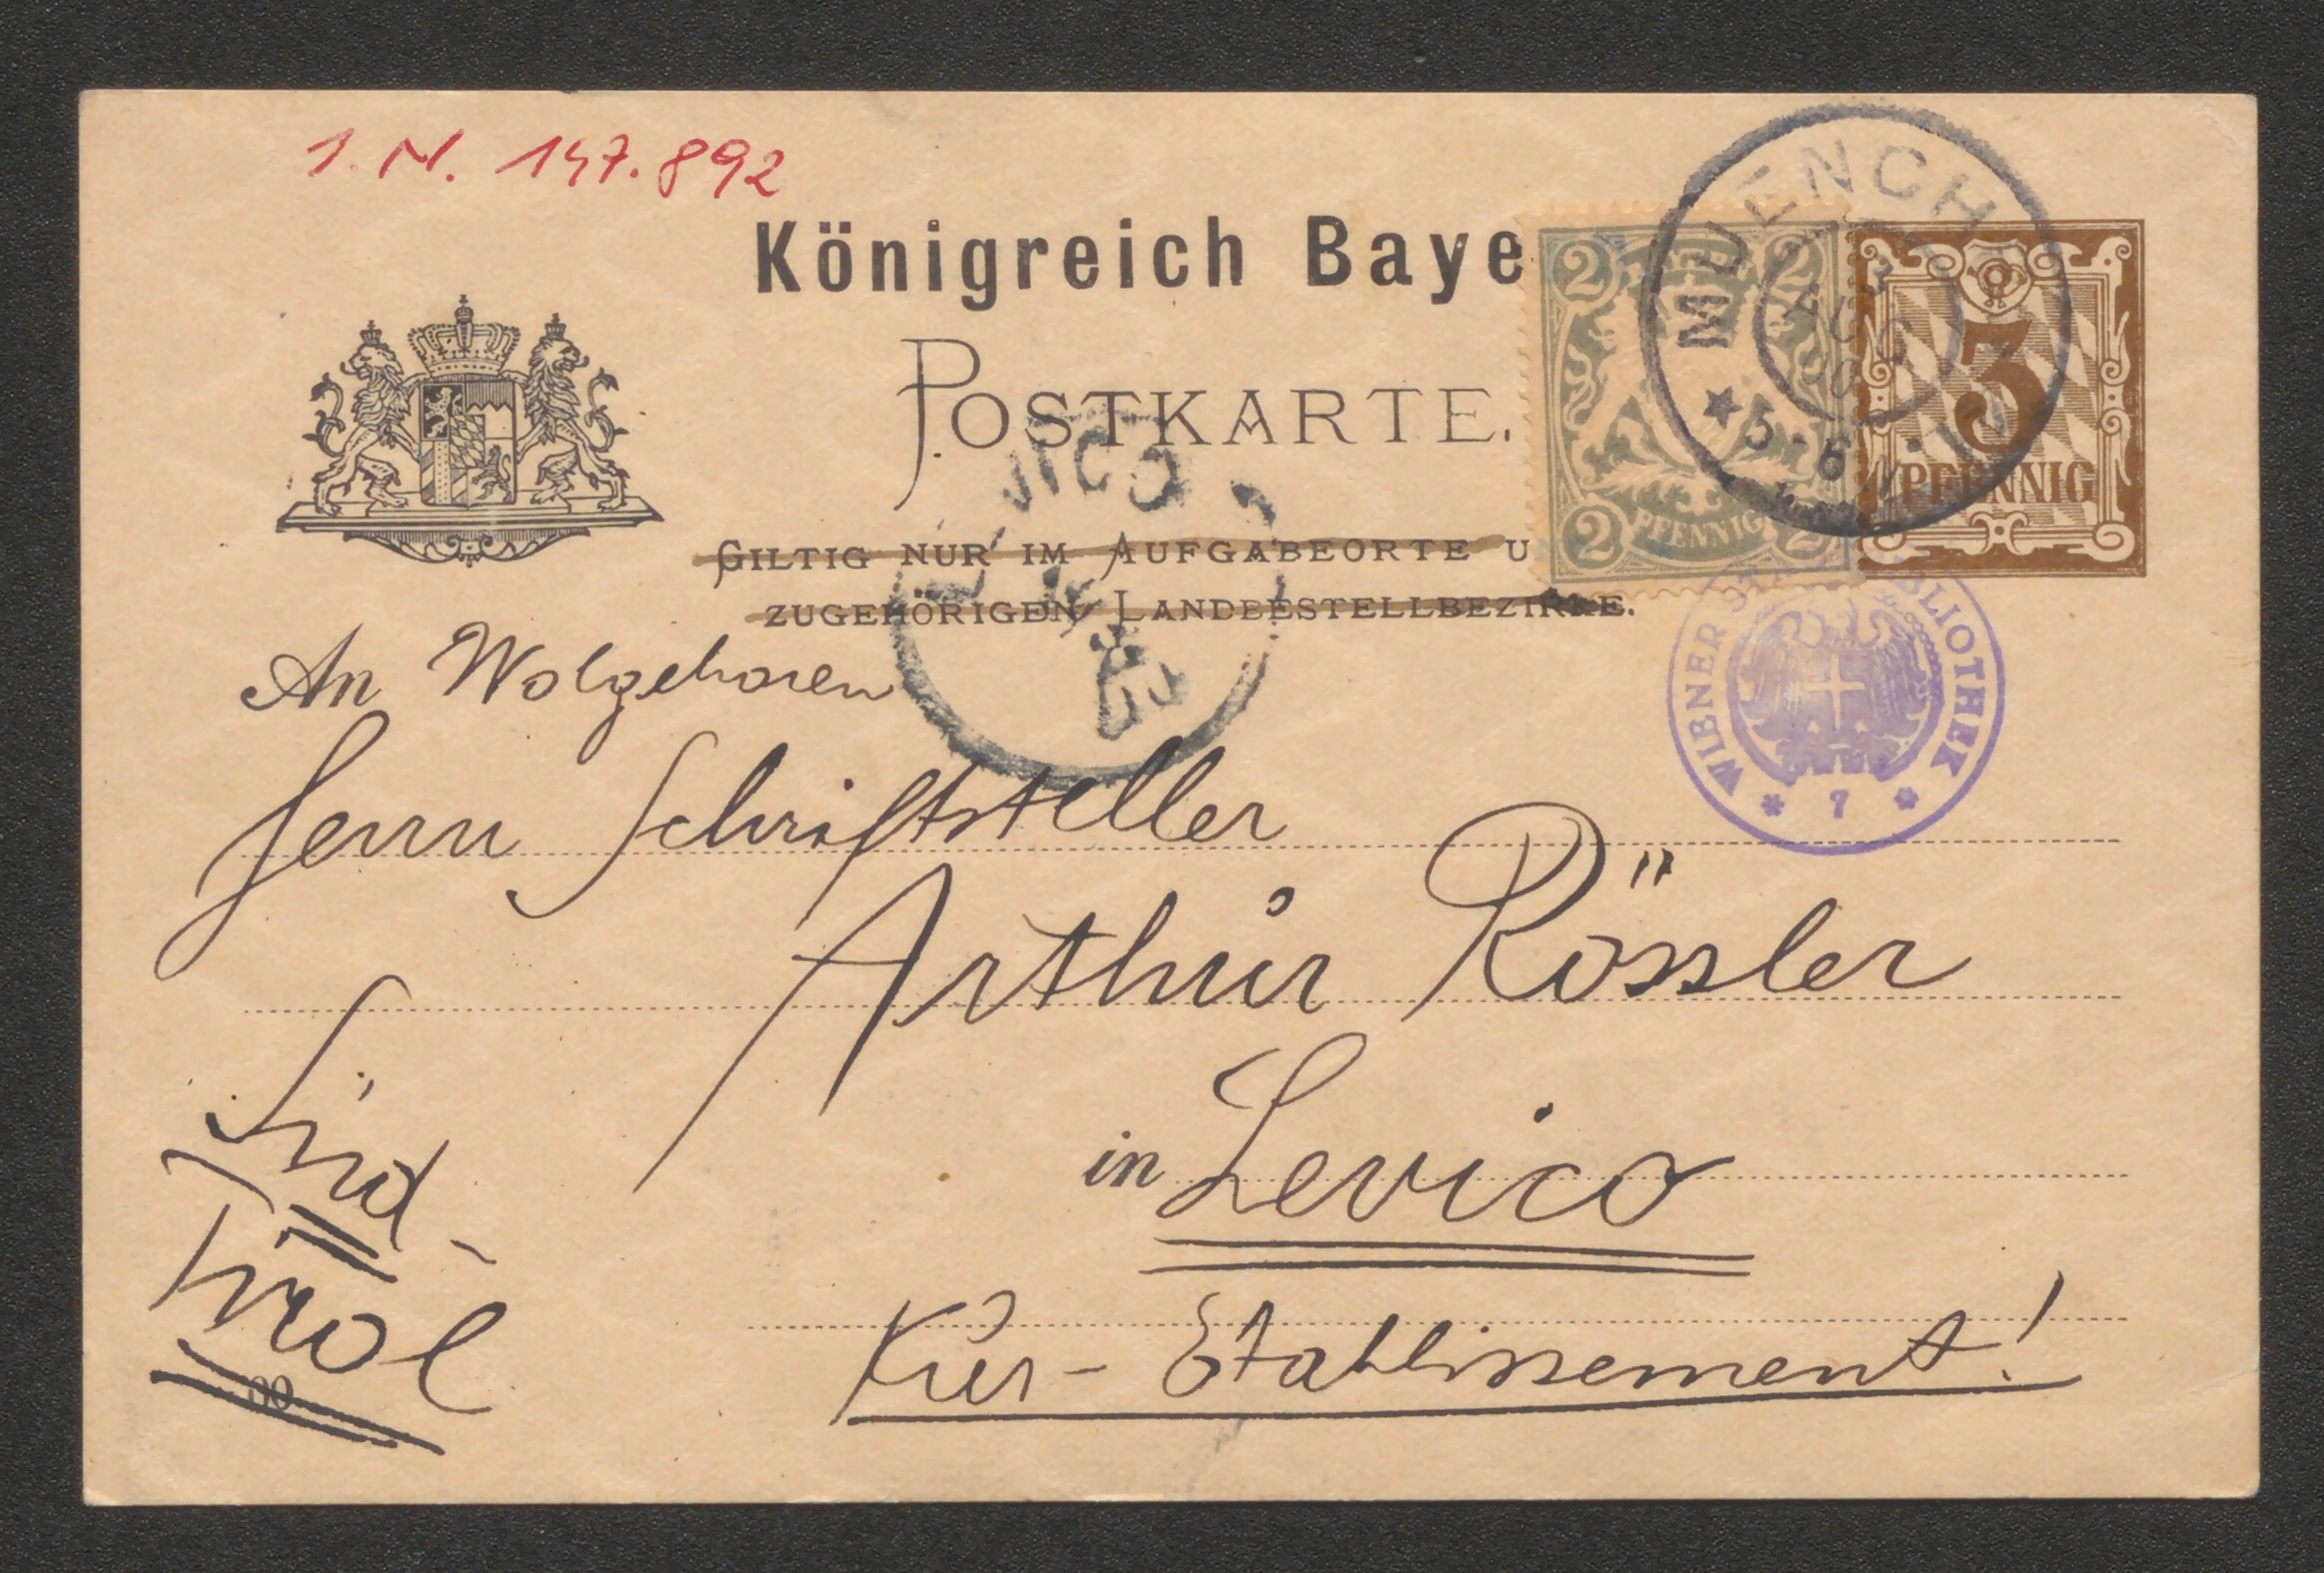 I. N. 147.892
Königreich Baye
POSTKARTE.
GILTIG NUR IM AUFGABEORTE U
ZUGEHÖRIGEN LANDBESTELLBEZIRKE.
2 2
2 PFENNIG 2
MUENCH
AUG
00
5-6 N.
3
PFENNIG
VICO
WIENER STADTBIBLIOTHEK
* 7 *
An Wolgeboren
Herrn Schriftsteller
Arthur Rössler
in Levico
Kur-Etablissement!
Süd-
tirol
00